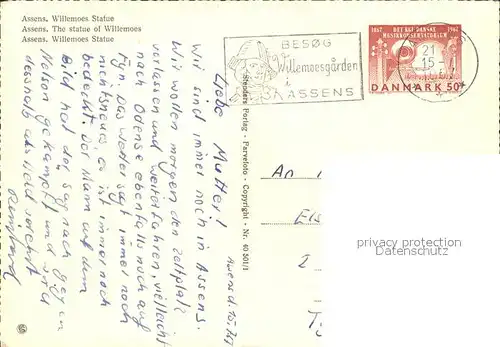 Assens. Willemoes Statue
Assens. The statue of Willemoes
Assens. Willemoes Statue
BESØG
Willemoesgården
i
ASSENS
1867 DET KGL DANSKE 1967
MUSIKKONSERVATORIUM
DANMARK 50
21
15
Stenders Forlag - Farvefoto - Copyright - Nr. 40 501/1
Assens d.
Liebe Mutter!
Wir sind immer noch in Assens.
Wir wollen morgen den Zeltplatz
verlassen und weiterfahren, vielleicht
nach Odense ebenfalls noch auf
Fyn. Das Wetter sagt immer noch
nichts neues es ist immer noch
bedeckt. Der Mann auf dem
Bild hat der Sage nach gegen
Nelson gekämpft und wird
deshalb als Held verehrt
An
privacy protection
Datenschutz